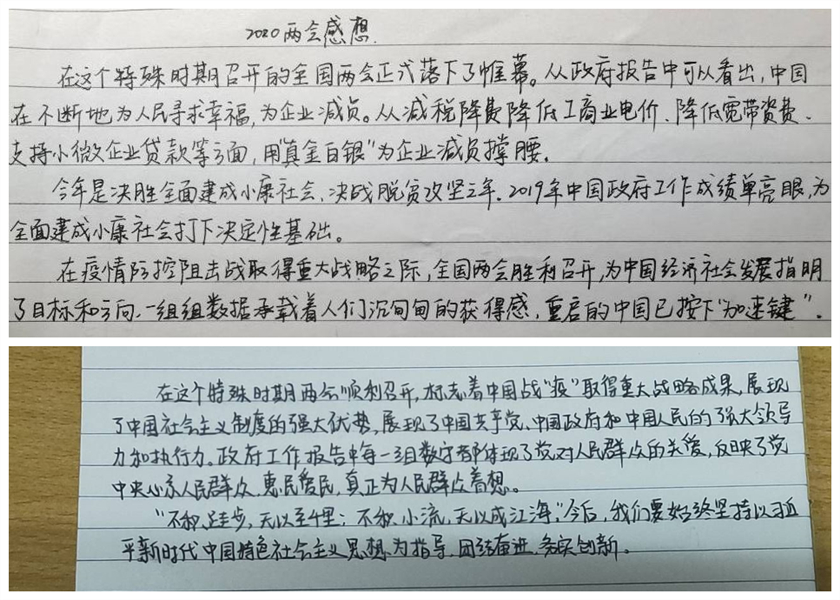 2020两会感想.
在这个特殊时期召开的全国两会正式落下了帷幕。从政府报告中可以看出,中国
在不断地为人民寻求幸福,为企业减负。从减税降费降低工商业电价、降低宽带资费、
支持小微企业贷款等方面,用“真金白银”为企业减负撑腰.
今年是决胜全面建成小康社会、决战脱贫攻坚之年.2019年中国政府工作成绩单亮眼,为
全面建成小康社会打下决定性基础。
在疫情防控阻击战取得重大战略之际,全国两会胜利召开,为中国经济社会发展指明
了目标和方向.一组组数据承载着人们沉甸甸的获得感,重启的中国已按下“加速键”.
在这个特殊时期两会顺利召开,标志着中国战“疫”取得重大战略成果,展现
了中国社会主义制度的强大优势,展现了中国共产党、中国政府和中国人民的强大领导
力和执行力.政府工作报告中每一组数字都体现了党对人民群众的关爱,反映了党
中央心系人民群众、惠民爱民,真正为人民群众着想。
“不积跬步,无以至千里;不积小流,无以成江海,”今后,我们要始终坚持以习近
平新时代中国特色社会主义思想为指导,团结奋进、务实创新.